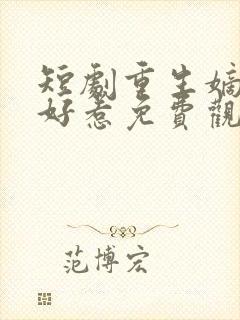 短劇重生嫡
好惹免費觀
范博宏